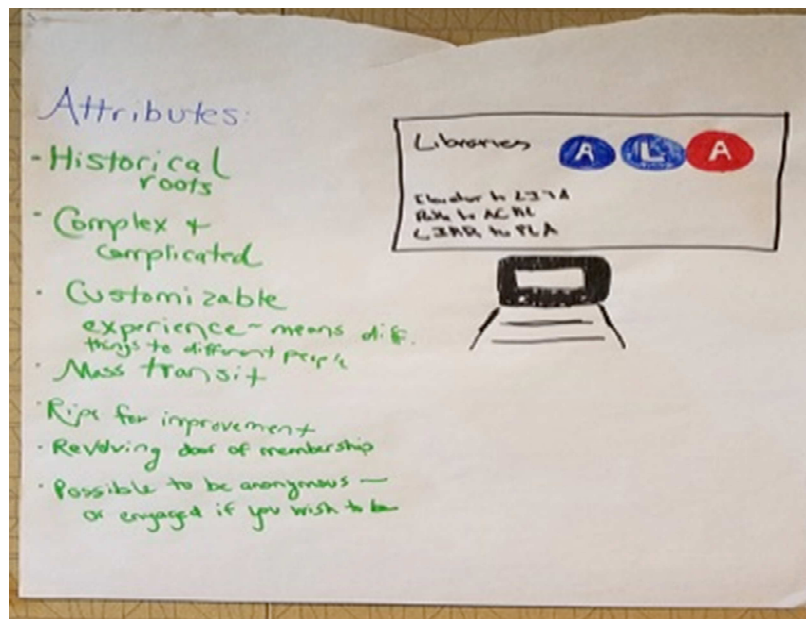 Attributes:
- Historical
roots
- Complex +
complicated
- Customizable
experience - means diff.
things to different people
- Mass transit
- Ripe for improvement
- Revolving door of membership
- Possible to be anonymous —
or engaged if you wish to be
Libraries A L A
Elevator to
to ACRL
to PLA